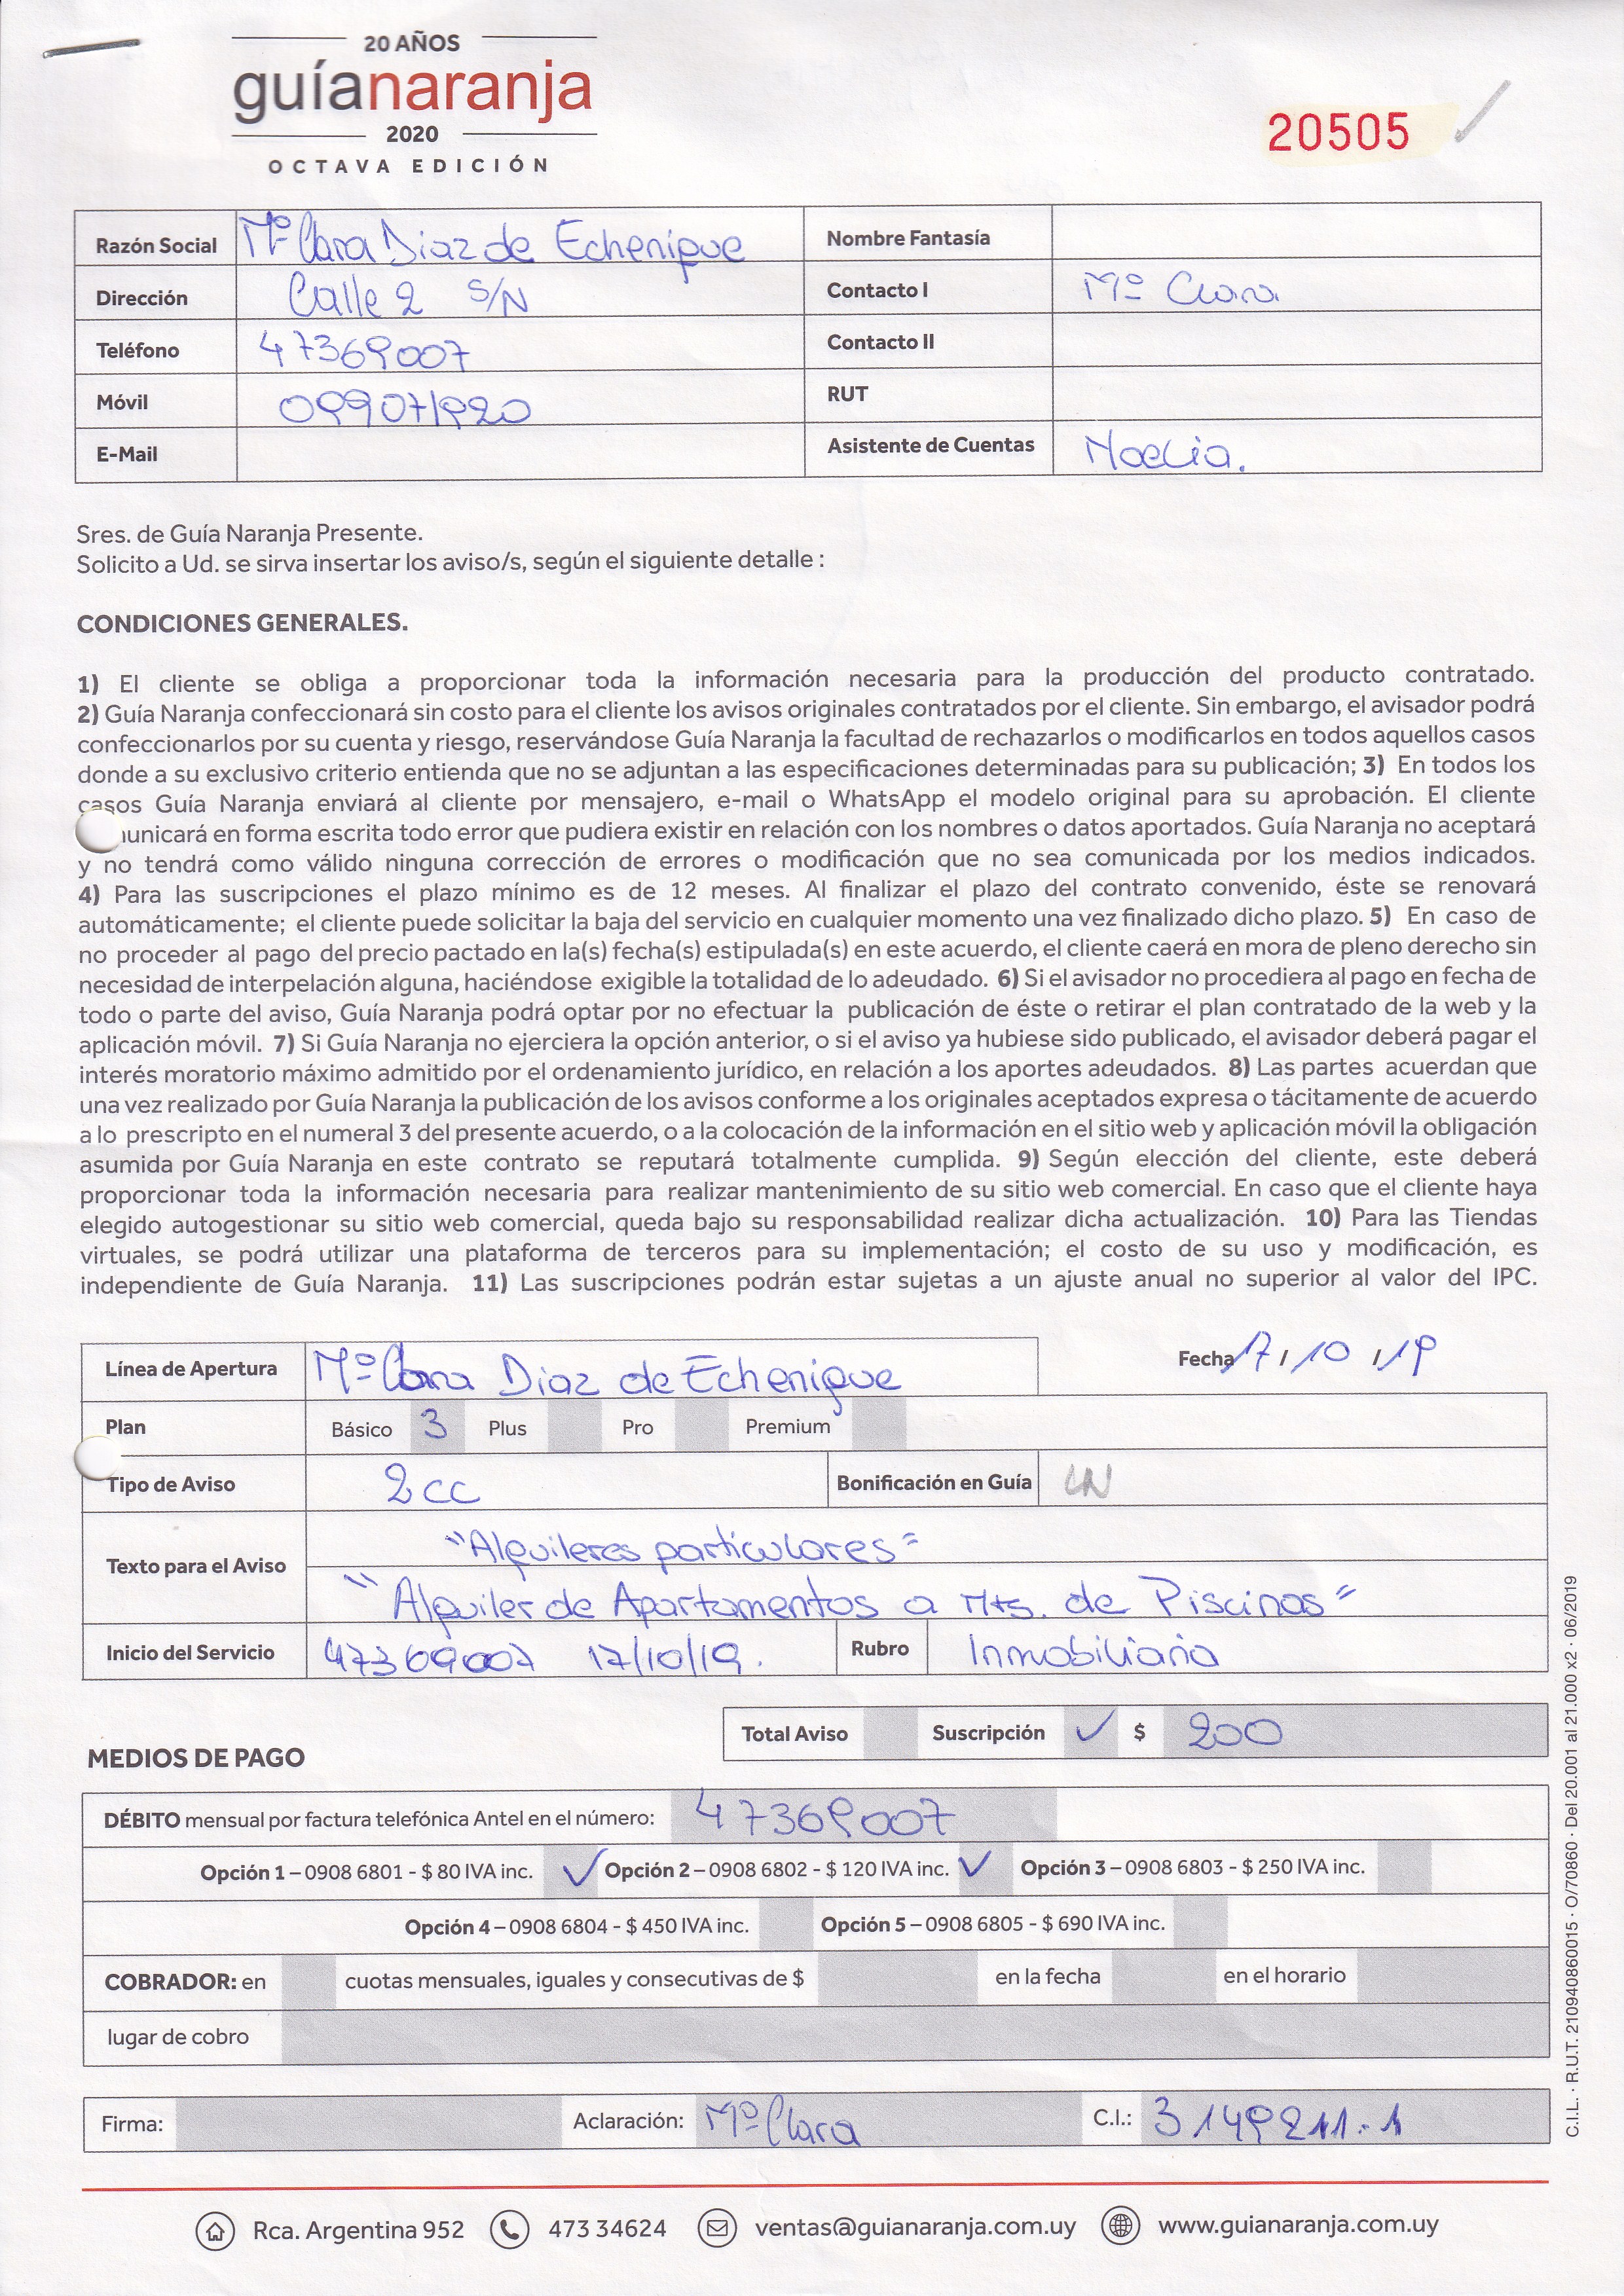 20 AÑOS
guíanaranja
2020
OCTAVA EDICIÓN
20505
Razón Social Mª Clara Diaz de Echenique Nombre Fantasía
Dirección Calle 2 S/N Contacto I Mª Clara
Teléfono 47369007 Contacto II
Móvil 099071920 RUT
E-Mail Asistente de Cuentas Noelia.
Sres. de Guía Naranja Presente.
Solicito a Ud. se sirva insertar los aviso/s, según el siguiente detalle :
CONDICIONES GENERALES.
1) El cliente se obliga a proporcionar toda la información necesaria para la producción del producto contratado.
2) Guía Naranja confeccionará sin costo para el cliente los avisos originales contratados por el cliente. Sin embargo, el avisador podrá
confeccionarlos por su cuenta y riesgo, reservándose Guía Naranja la facultad de rechazarlos o modificarlos en todos aquellos casos
donde a su exclusivo criterio entienda que no se adjuntan a las especificaciones determinadas para su publicación; 3) En todos los
casos Guía Naranja enviará al cliente por mensajero, e-mail o WhatsApp el modelo original para su aprobación. El cliente
unicará en forma escrita todo error que pudiera existir en relación con los nombres o datos aportados. Guía Naranja no aceptará
y no tendrá como válido ninguna corrección de errores o modificación que no sea comunicada por los medios indicados.
4) Para las suscripciones el plazo mínimo es de 12 meses. Al finalizar el plazo del contrato convenido, éste se renovará
automáticamente; el cliente puede solicitar la baja del servicio en cualquier momento una vez finalizado dicho plazo. 5) En caso de
no proceder al pago del precio pactado en la(s) fecha(s) estipulada(s) en este acuerdo, el cliente caerá en mora de pleno derecho sin
necesidad de interpelación alguna, haciéndose exigible la totalidad de lo adeudado. 6) Si el avisador no procediera al pago en fecha de
todo o parte del aviso, Guía Naranja podrá optar por no efectuar la publicación de éste o retirar el plan contratado de la web y la
aplicación móvil. 7) Si Guía Naranja no ejerciera la opción anterior, o si el aviso ya hubiese sido publicado, el avisador deberá pagar el
interés moratorio máximo admitido por el ordenamiento jurídico, en relación a los aportes adeudados. 8) Las partes acuerdan que
una vez realizado por Guía Naranja la publicación de los avisos conforme a los originales aceptados expresa o tácitamente de acuerdo
a lo prescripto en el numeral 3 del presente acuerdo, o a la colocación de la información en el sitio web y aplicación móvil la obligación
asumida por Guía Naranja en este contrato se reputará totalmente cumplida. 9) Según elección del cliente, este deberá
proporcionar toda la información necesaria para realizar mantenimiento de su sitio web comercial. En caso que el cliente haya
elegido autogestionar su sitio web comercial, queda bajo su responsabilidad realizar dicha actualización. 10) Para las Tiendas
virtuales, se podrá utilizar una plataforma de terceros para su implementación; el costo de su uso y modificación, es
independiente de Guía Naranja. 11) Las suscripciones podrán estar sujetas a un ajuste anual no superior al valor del IPC.
Línea de Apertura Mª Clara Diaz de Echenique Fecha 17 / 10 / 19
Plan Básico 3 Plus Pro Premium
Tipo de Aviso 2cc Bonificación en Guía LN
Texto para el Aviso "Alquileres particulares"
"Alquiler de Apartamentos a Mts. de Piscinas"
Inicio del Servicio 47369007 17/10/19. Rubro Inmobiliaria
Total Aviso Suscripción ✓ $ 200
MEDIOS DE PAGO
DÉBITO mensual por factura telefónica Antel en el número: 47369007
Opción 1 – 0908 6801 - $ 80 IVA inc. ✓ Opción 2 – 0908 6802 - $ 120 IVA inc. ✓ Opción 3 – 0908 6803 - $ 250 IVA inc.
Opción 4 – 0908 6804 - $ 450 IVA inc. Opción 5 – 0908 6805 - $ 690 IVA inc.
COBRADOR: en cuotas mensuales, iguales y consecutivas de $ en la fecha en el horario
lugar de cobro
Firma: Aclaración: Mª Clara C.I.: 3149211-1
Rca. Argentina 952 473 34624 ventas@guianaranja.com.uy www.guianaranja.com.uy
C.I.L. · R.U.T. 210940860015 · O/70860 · Del 20.001 al 21.000 x2 · 06/2019